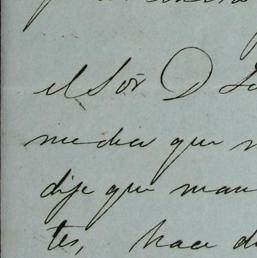 el Sor D
media que
dije que man
tes, hace d